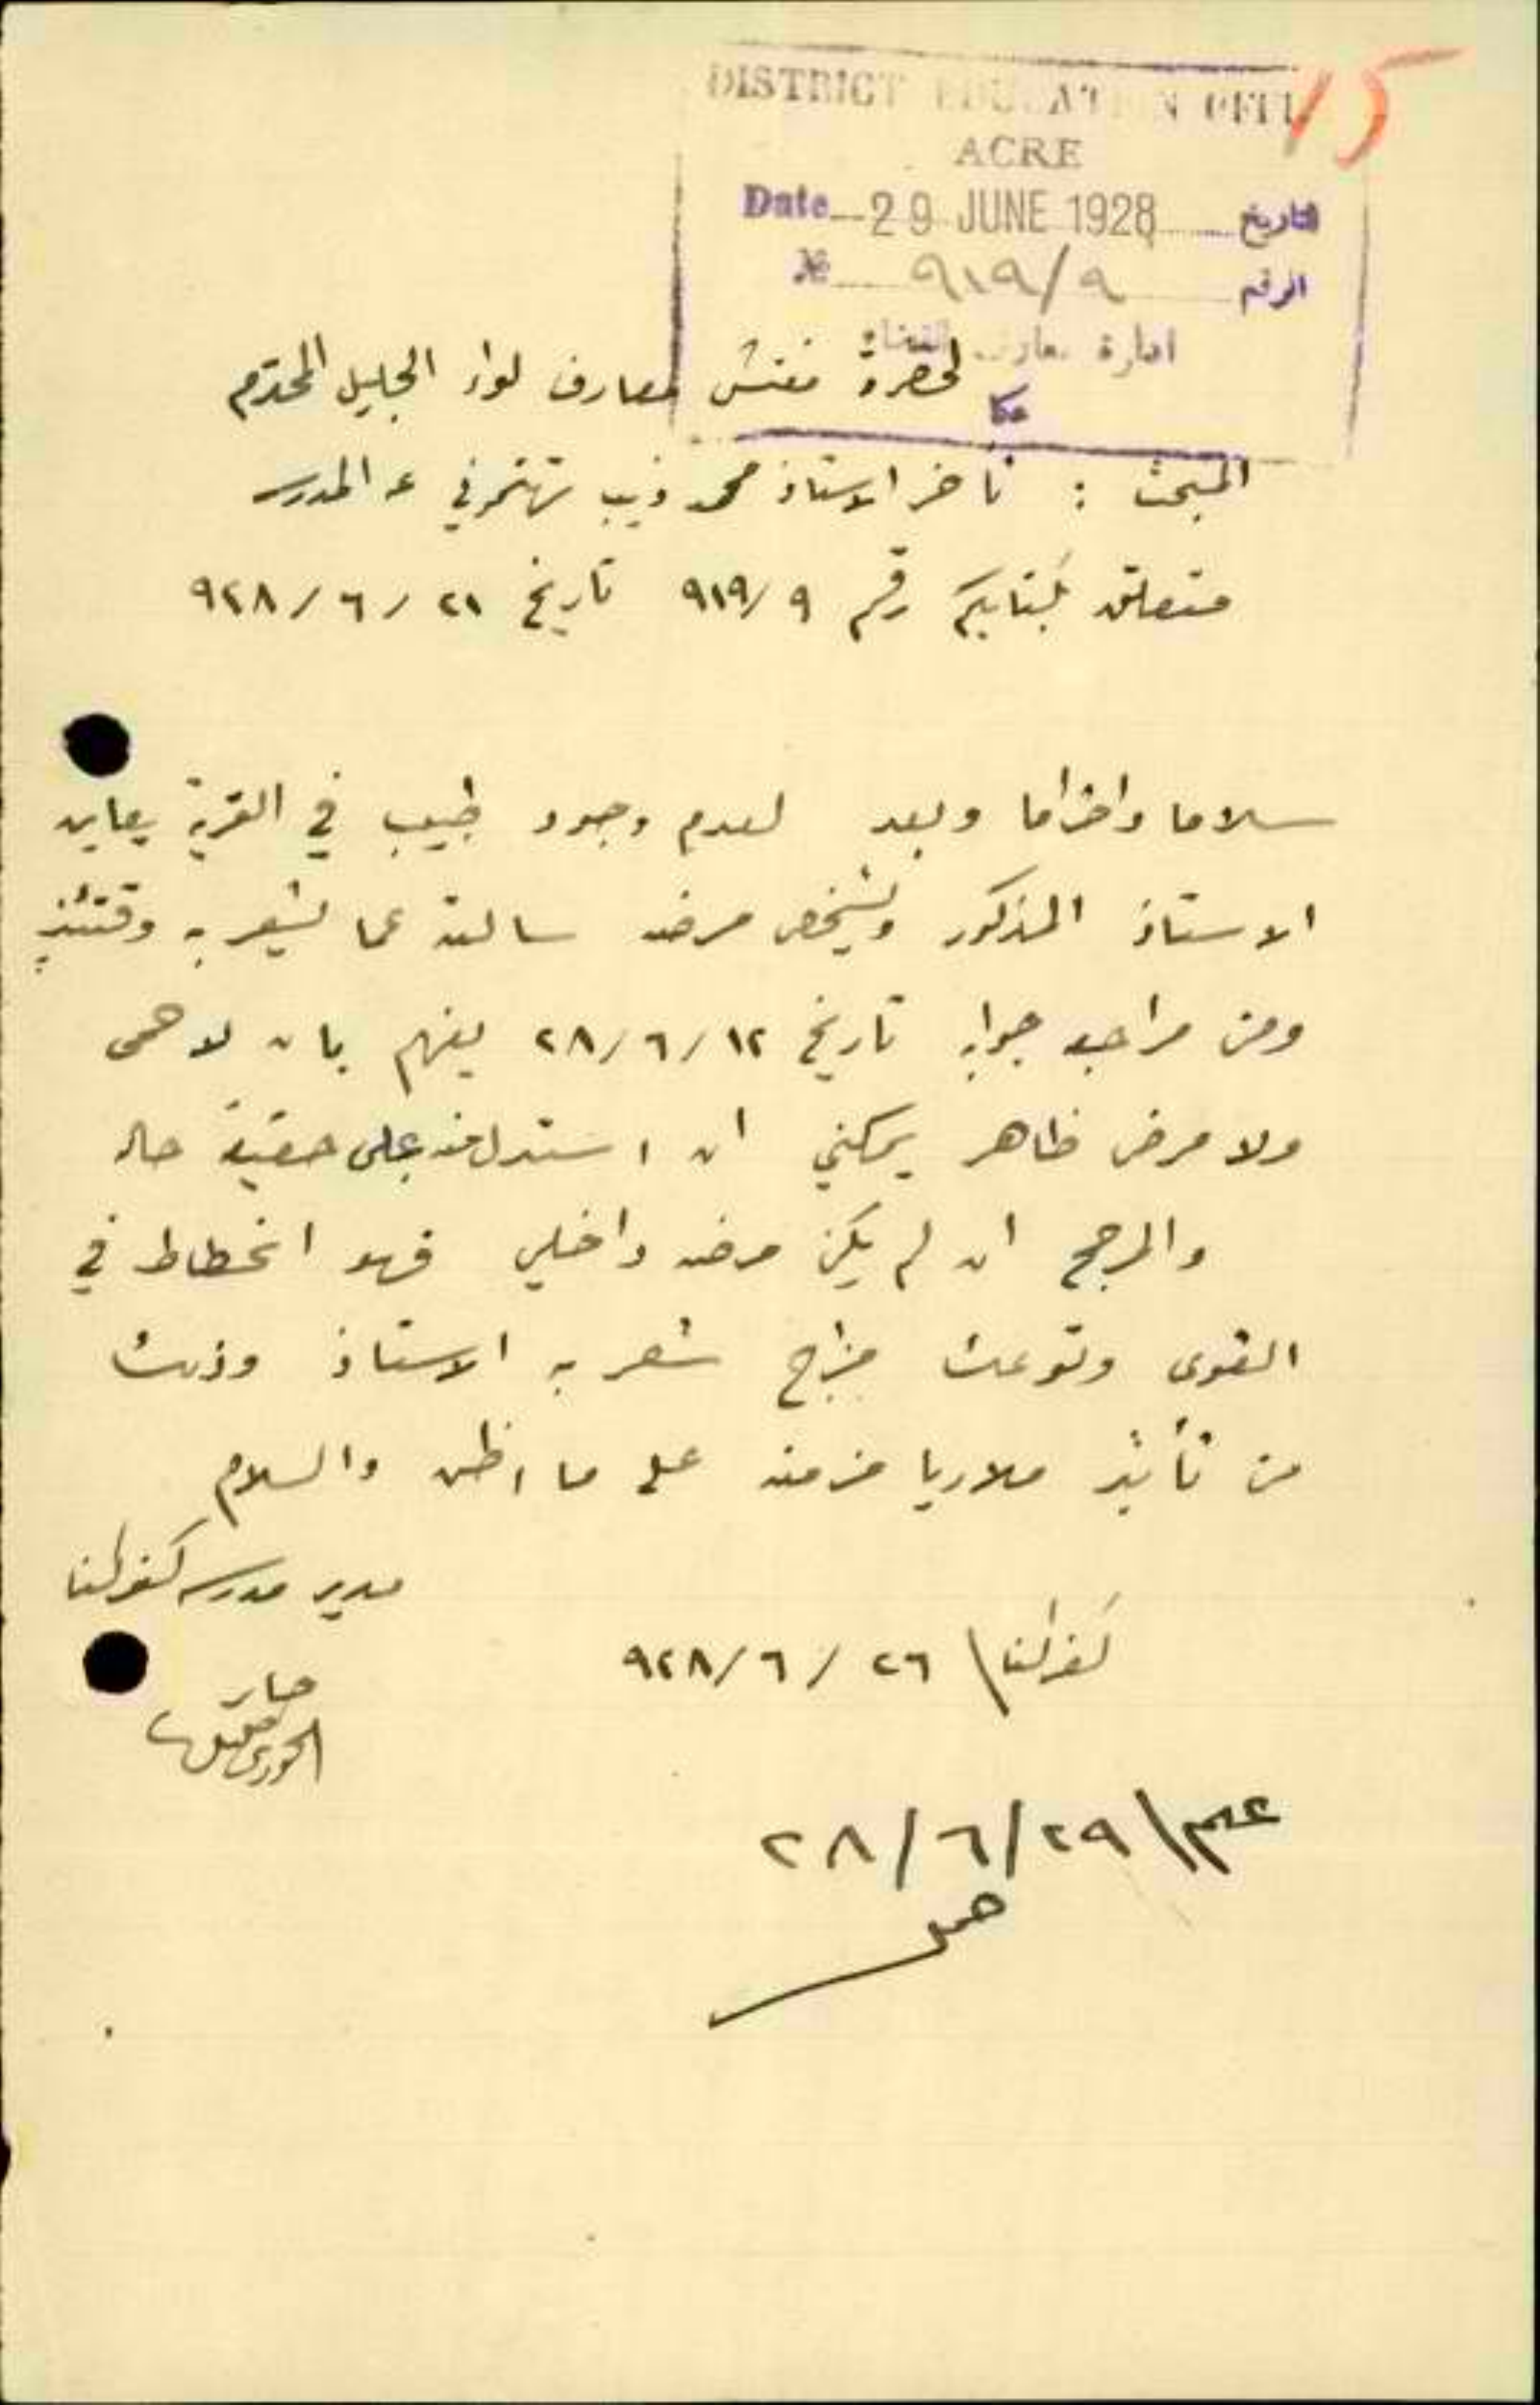 15
DISTRICT EDUCATION OFFI
ACRE
Date 29 JUNE 1928 التاريخ
№ ٩١٩/٩ الرقم
ادارة معارف القضاء
عكا
لحضرة مفتش معارف لواء الجليل المحترم
المبحث : تأخر الاستاذ محمد ذيب عن المدرسه
متعلق بكتابكم رقم ٩١٩/٩ تاريخ ٢١ / ٦ / ٩٢٨
سلاما واحتراما وبعد لعدم وجود طبيب في القرية يعاين
الاستاذ المذكور ويشخص مرضه سالته عما يشعر به وقتئذٍ
ومن مراجعة جوابه تاريخ ١٢ / ٦ / ٢٨ يفهم بان لا حمى
ولا مرض ظاهر يمكني ان استدل منه على حقيقة حاله
والمرجح ان لم يكن مرضه داخلي فهو انحطاط في
القوى وتوعك مزاج شعر به الاستاذ وذلك
من تأثير ملاريا مزمنه على ما اظن والسلام
مدير مدرسه كفرلسنا
كفرلسنا \ ٢٦ / ٦ / ٩٢٨
الخوري
٢٩ / ٦ / ٢٨